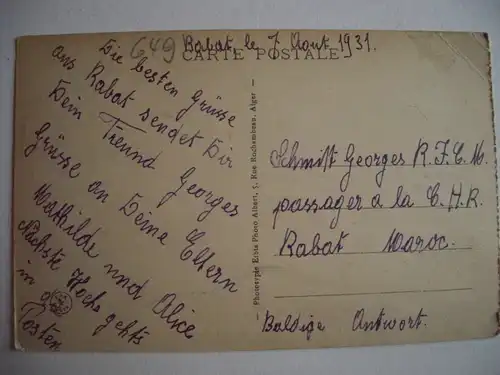 649
Rabat, le 7 Aout 1931.
CARTE POSTALE
Die besten Grüsse
aus Rabat sendet Dir
Dein Freund Georges
Grüsse an Deine Eltern
Mathilde und Alice
Nächste Woche gehts
in
Posten
Phototypie Etabs Photo Albert, 5, Rue Rochambeau, Alger
Schmitt Georges R.F.C.M.
passager a la C.H.R.
Rabat Maroc.
Baldige Antwort.